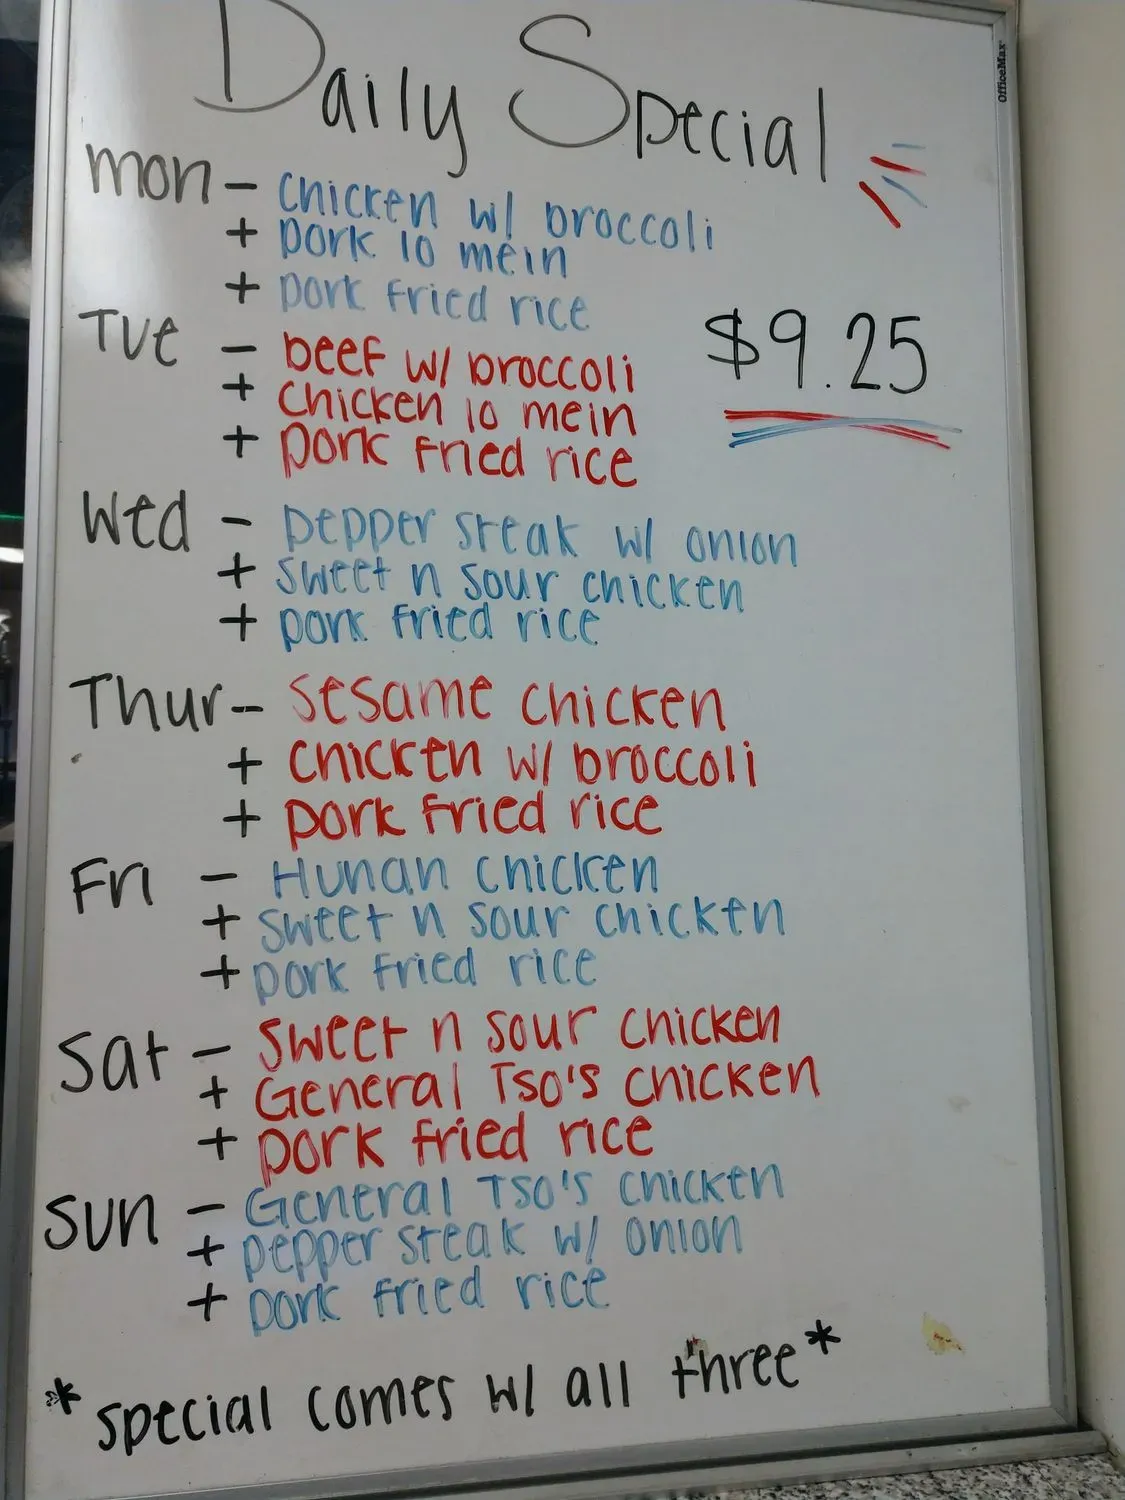 Daily Special
OfficeMax
mon - chicken w/ broccoli
+ pork lo mein
+ pork fried rice
$9.25
Tue - beef w/ broccoli
+ chicken lo mein
+ pork fried rice
Wed - pepper steak w/ onion
+ sweet n sour chicken
+ pork fried rice
Thur - sesame chicken
+ chicken w/ broccoli
+ pork fried rice
Fri - Hunan chicken
+ sweet n sour chicken
+ pork fried rice
Sat - sweet n sour chicken
+ General Tso's chicken
+ pork fried rice
Sun - General Tso's chicken
+ pepper steak w/ onion
+ pork fried rice
*special comes w/ all three*